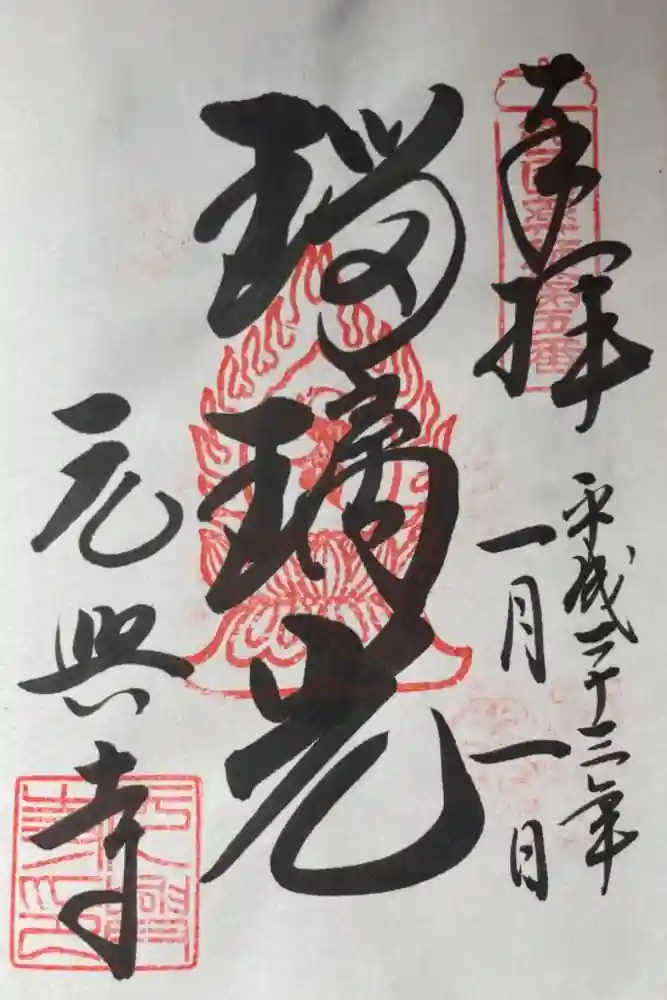 奉拝
平成二十三年
一月一日
瑠璃光
元興寺